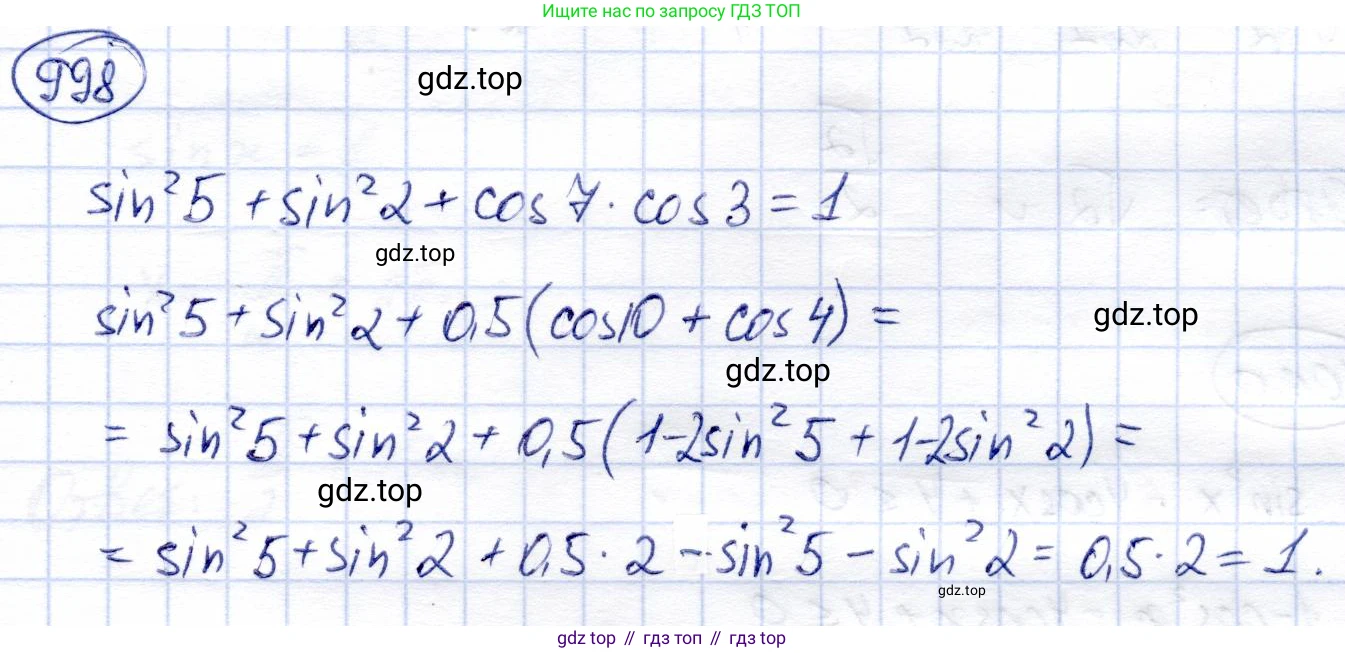 Ищите нас по запросу ГДЗ ТОП
998
gdz.top
sin²5 + sin²2 + cos 7 · cos 3 = 1
gdz.top
sin²5 + sin²2 + 0,5(cos10 + cos 4) =
gdz.top
gdz.top
= sin²5 + sin²2 + 0,5(1-2sin²5 + 1-2sin²2) =
gdz.top
= sin²5 + sin²2 + 0,5 · 2 - sin²5 - sin²2 = 0,5 · 2 = 1.
gdz.top
gdz top // гдз топ // gdz top